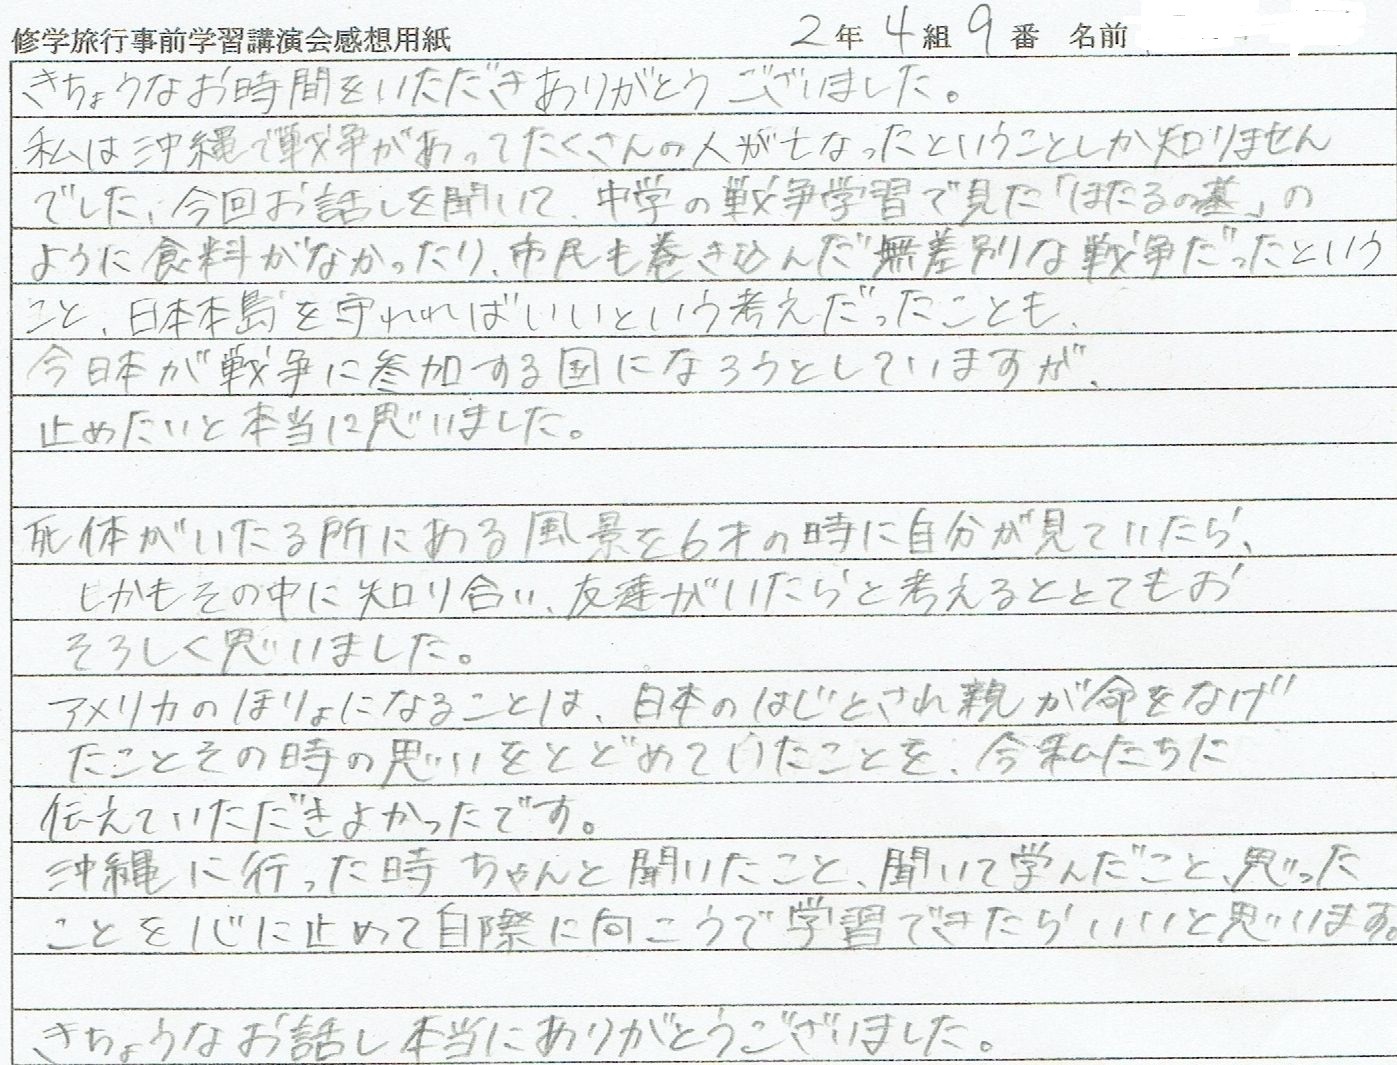 修学旅行事前学習講演会感想用紙 2年4組9番 名前
きちょうなお時間をいただきありがとうございました。
私は沖縄で戦争があってたくさんの人が亡なったということしか知りません
でした、今回お話しを聞いて、中学の戦争学習で見た「ほたるの墓」の
ように食料がなかったり、市民も巻き込んだ無差別な戦争だったという
こと、日本本島を守れればいいという考えだったことも、
今日本が戦争に参加する国になろうとしていますが、
止めたいと本当に思いました。
死体がいたる所にある風景を6才の時に自分が見ていたら、
しかもその中に知り合い、友達がいたらと考えるととてもお
そろしく思いました。
アメリカのほりょになることは、日本のはじとされ親が命をなげ
たことその時の思いをとどめていたことを、今私たちに
伝えていただきよかったです。
沖縄に行った時ちゃんと聞いたこと、聞いて学んだこと、思った
ことを心に止めて自際に向こうで学習できたらいいと思います。
きちょうなお話し本当にありがとうございました。